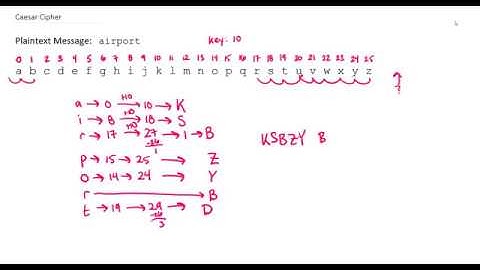 Caesar Cipher
Plaintext Message: airport key: 10
0 1 2 3 4 5 6 7 8 9 10 11 12 13 14 15 16 17 18 19 20 21 22 23 24 25
a b c d e f g h i j k l m n o p q r s t u v w x y z
?
a → 0 +10 → 10 → K
i → 8 +10 → 18 → S
r → 17 +10 → 27 → 1 → B
-26
1
KSBZY B
p → 15 → 25 → Z
o → 14 → 24 → Y
r → B
t → 19 → 29 → D
3